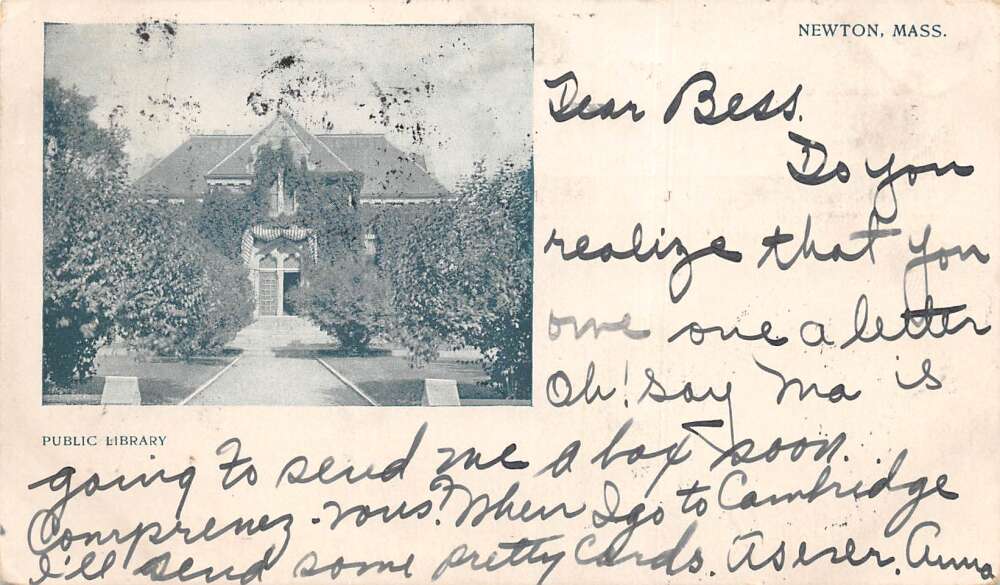 NEWTON, MASS.
Dear Bess.
Do you
realize that you
owe one a letter
Oh! Say Ma is
PUBLIC LIBRARY
going to send me a box soon.
Comprenez-vous? When I go to Cambridge
I'll send some pretty cards. As ever. Anna